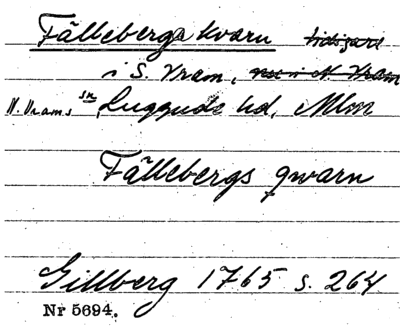 Fälleberga kvarn tidigare
i S. Vram, nu i N. Vram
N. Vrams sn Luggude hd, Mlm
Fällebergs qwarn
Gillberg 1765 s. 264
Nr 5694.